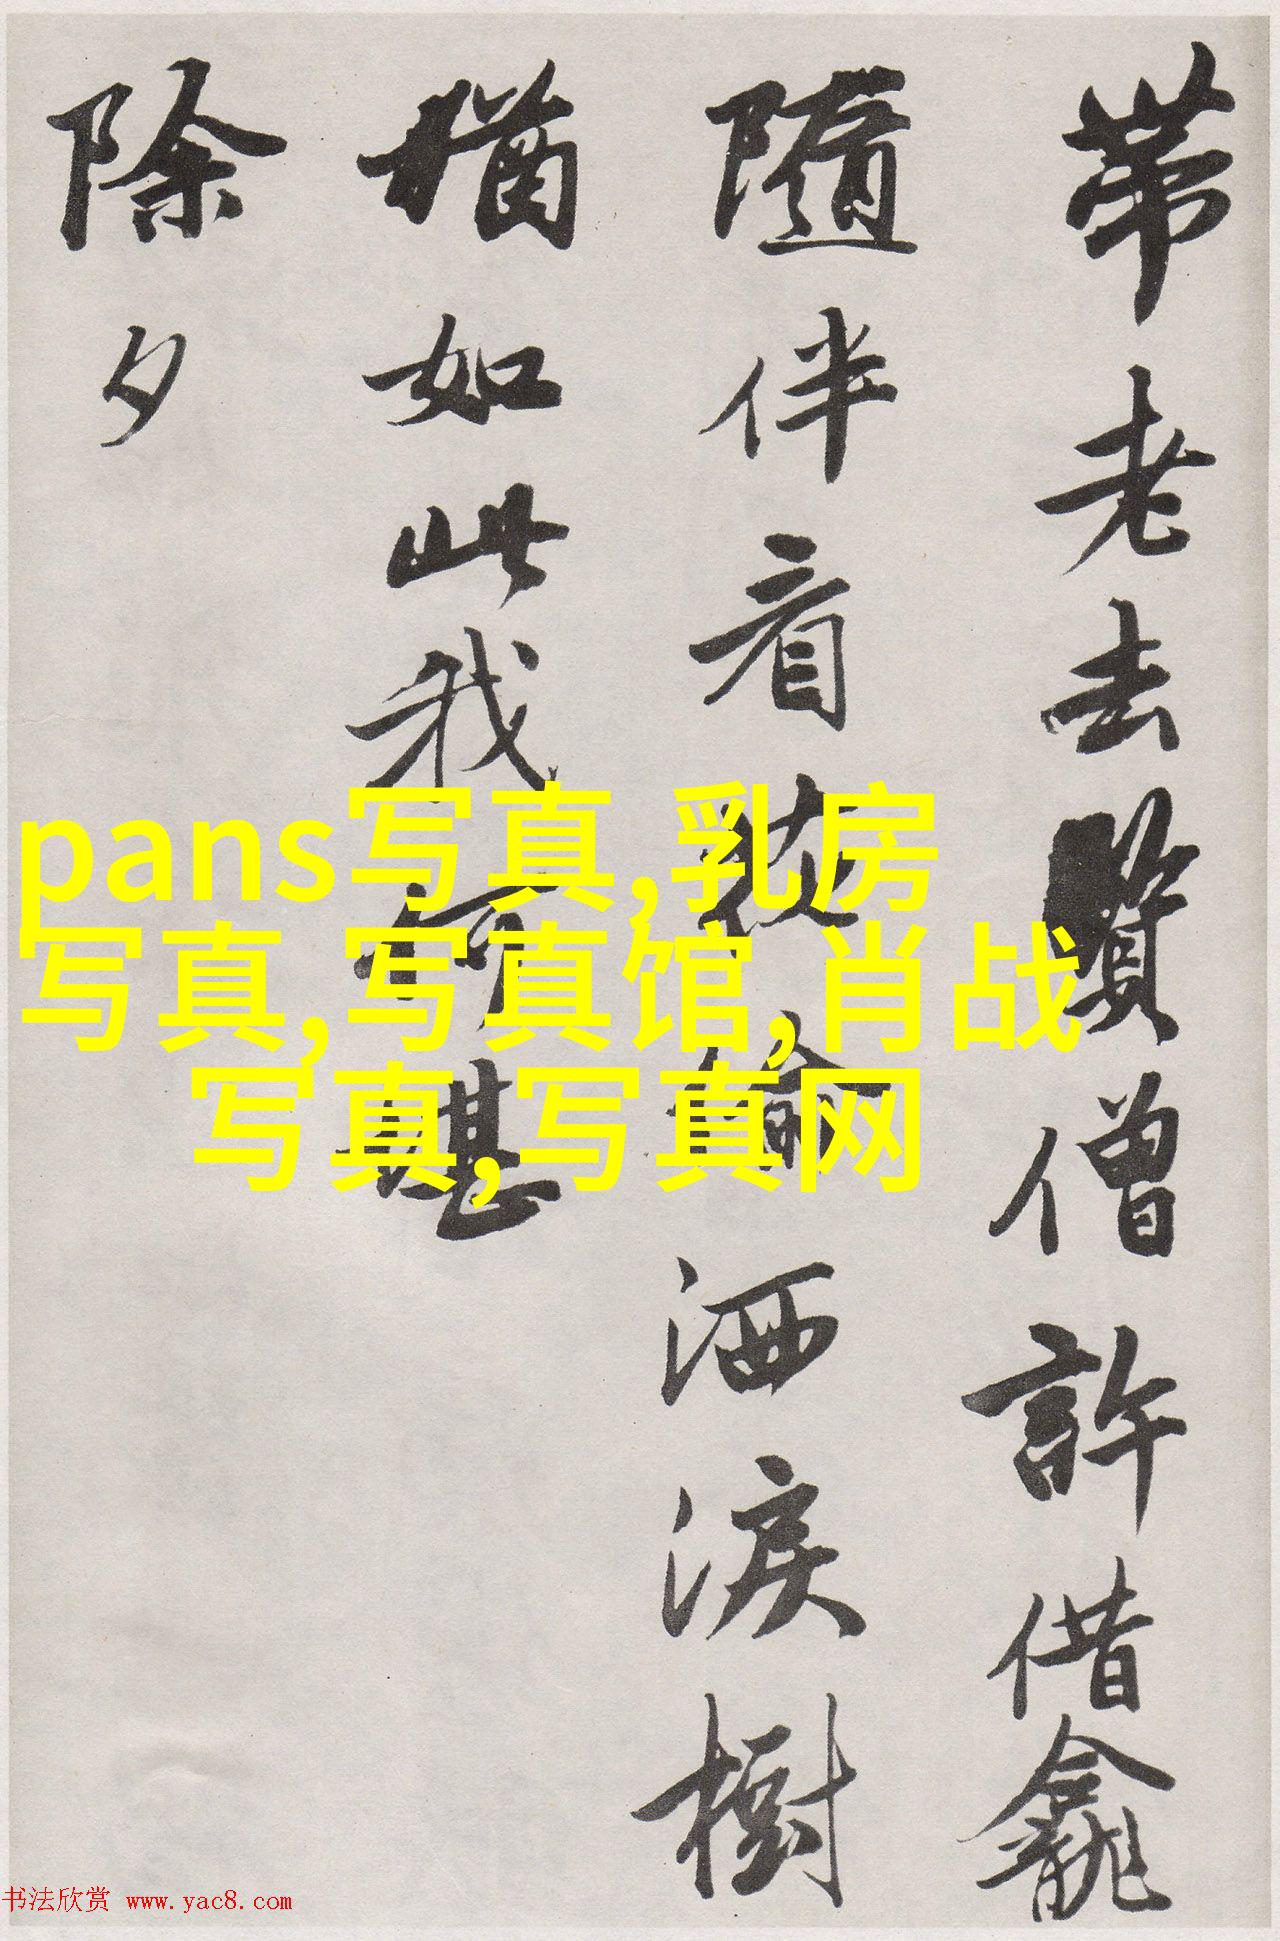 帶老去賢僧許借龕
隨伴看花偷洒淚樹
猶如此我何堪
除夕
pans写真,乳房
写真,写真馆,肖战
写真,写真网
书法欣赏 www.yac8.com